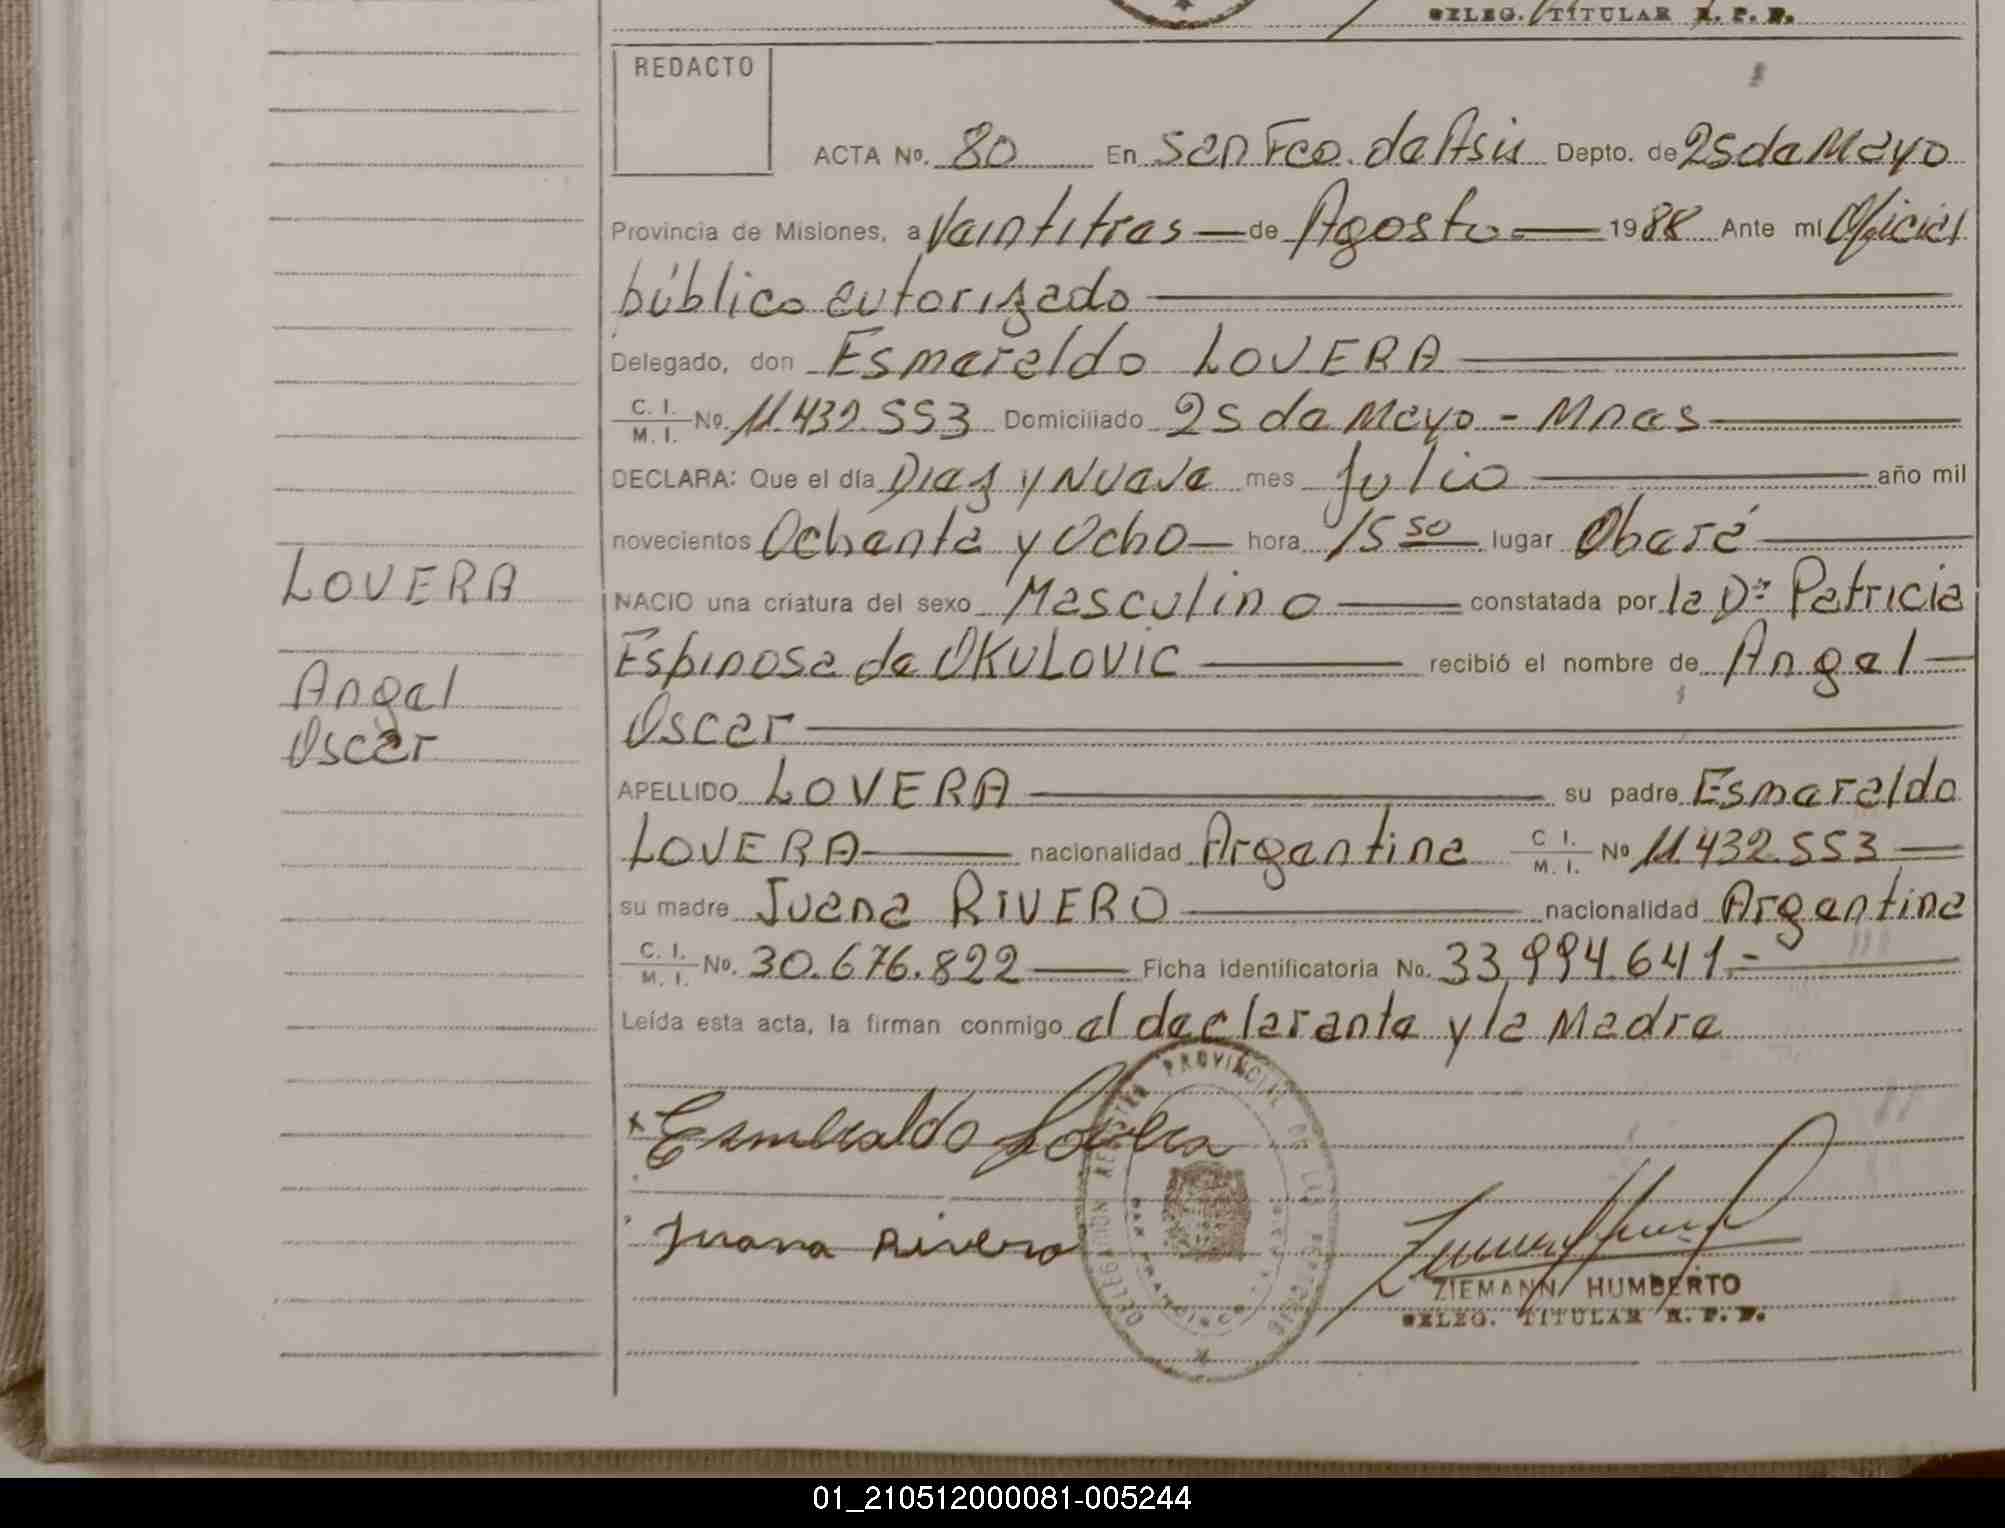 DELEG. TITULAR R. P. P.
REDACTO
ACTA No. 80 En San Fco. de Asis Depto. de 25 de Mayo
Provincia de Misiones, a Veintitres — de Agosto — 1988 Ante mi Oficial
público autorizado
Delegado, don Esmeraldo LOVERA
C. I. / M. I. No. 11.432.553 Domiciliado 25 de Mayo - Mnes
DECLARA: Que el día Diez y Nueve mes Julio año mil
novecientos Ochenta y Ocho — hora 15 50 lugar Oberá
NACIO una criatura del sexo Masculino constatada por la Dra Patricia
Espinosa de OKULOVIC recibió el nombre de Angel
Oscar
APELLIDO LOVERA su padre Esmeraldo
LOVERA nacionalidad Argentina C I. / M. I. No 11.432.553
su madre Juana RIVERO nacionalidad Argentina
C. I. / M. I. No. 30.676.822 Ficha identificatoria No. 33.994.641.-
Leída esta acta, la firman conmigo el declarante y la Madre
LOVERA
Angel
Oscar
Esmeraldo Lovera
Juana Rivero
DELEGACION REGISTRO PROVINCIAL DE LAS PERSONAS
SAN FRANCISCO
ZIEMANN HUMBERTO
DELEG. TITULAR R. P. P.
01_210512000081-005244